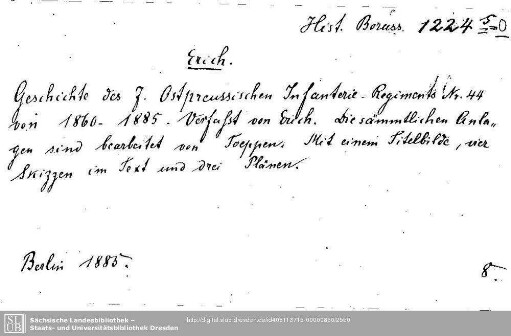 Hist. Boruss. 1224
Erich.
Geschichte des 7. Ostpreussischen Infanterie-Regiments Nr. 44
von 1860-1885. Verfasst von Erich. Die sämmtlichen Anla-
gen sind bearbeitet von Toeppen. Mit einem Titelbilde, vier
Skizzen im Text und drei Plänen.
Berlin 1885.
8.
Sächsische Landesbibliothek –
Staats- und Universitätsbibliothek Dresden